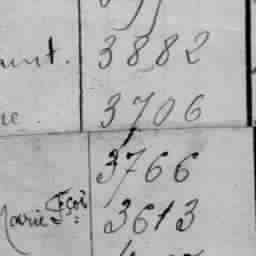 unt. 3882
ue. 3706
3766
Marie Fçois: 3613